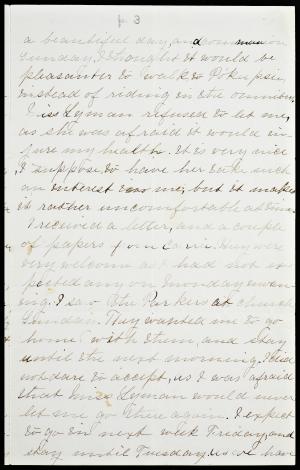 p. 3
a beautiful day, and
Sunday, I thought it would be
pleasanter to walk to Po'keepsie,
instead of riding in the omnibus.
Miss Lyman refused to let me,
as she was afraid it would in-
jure my health. It is very nice
I suppose to have her take such
an interest in me, but it makes
it rather uncomfortable at times.
I received a letter, and a couple
of papers from Carrie. They were
very welcome as I had not ex-
pected any on Monday even-
ing. I saw the Parkers at church
Sunday. They wanted me to go
home with them, and stay
until the next morning. I did
not dare to accept, as I was afraid
that Miss Lyman would never
let me go there again. I expect
to go in next week Friday, and
stay until Tuesday, as we have